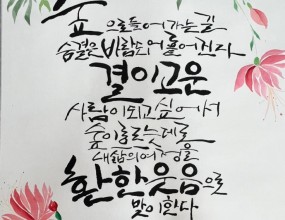 숲으로 들어가는 길
숨결은 바람으로 풀어진다
결이 고운
사람이 되고 싶어서
숲이 흐르는 데로
내 삶의 여정을
환한 웃음으로
맞이한다